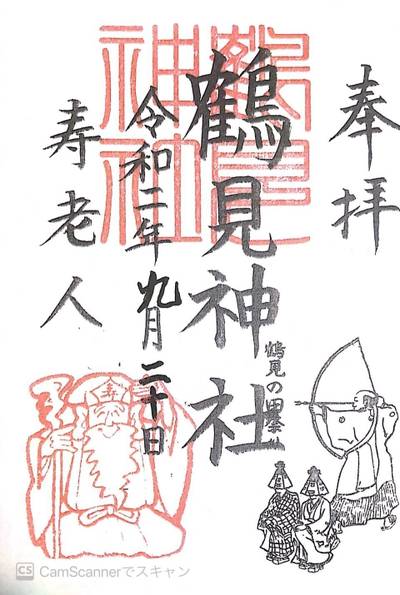 奉拝
鶴見神社
鶴見の田祭り
令和二年九月二十日
寿老人
鶴見
神社
寿
CS CamScannerでスキャン